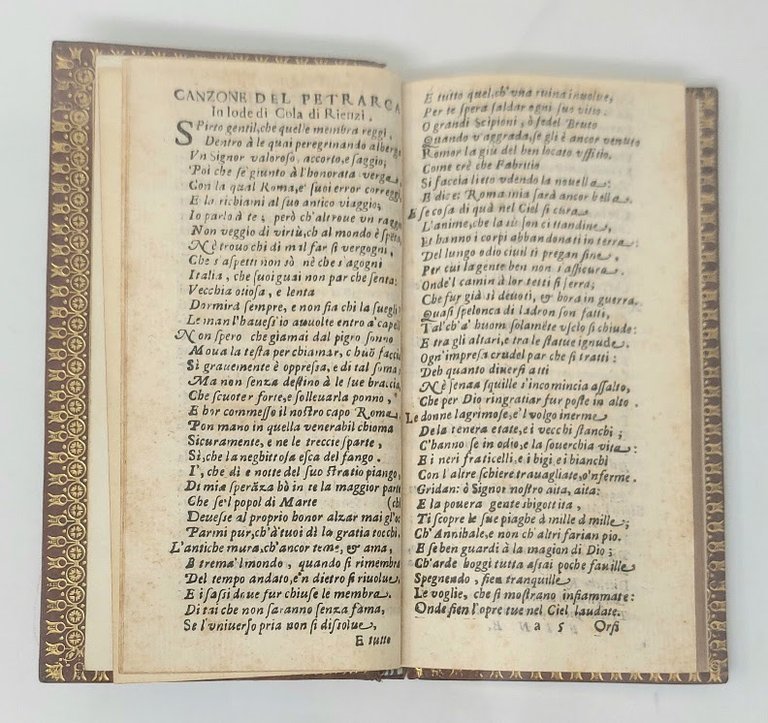 CANZONE DEL PETRARCA
In lode di Cola di Rienzi.
SPirto gentil, che quelle membra reggi,
Dentro à le quai peregrinando alberga
Vn Signor valoroso, accorto, e saggio;
Poi che se' giunto à l'honorata verga,
Con la qual Roma, e' suoi error correggi,
E la richiami al suo antico viaggio;
Io parlo à te; però ch'altroue vn raggio
Non veggio di virtù, ch'al mondo è spenta,
Nè trouo chi di mal far si vergogni,
Che s'aspetti non sò nè che s'agogni
Italia, che suoi guai non par che senta:
Vecchia otiosa, e lenta
Dormirà sempre, e non fia chi la suegli
Le man l'hauess'io auuolte entro a' capelli
Non spero che giamai dal pigro sonno
Moua la testa per chiamar, c'huō faccia
Sì grauemente è oppressa, e di tal soma:
Ma non senza destino à le tue braccia,
Che scuoter forte, e solleuarla ponno,
E hor commesso il nostro capo Roma.
Pon mano in quella venerabil chioma
Sicuramente, e ne le treccie sparte,
Sì, che la neghittosa esca del fango.
I', che dì e notte del suo stratio piango,
Di mia sperāza hò in te la maggior parte
Che se'l popol di Marte (ch
Deuesse al proprio honor alzar mai gl'oc
Parmi pur, ch'à tuoi dì la gratia tocchi.
L'antiche mura, ch'ancor teme, & ama,
E trema'l mondo, quando si rimembra
Del tempo andato, e'n dietro si riuolue,
E i sassi doue fur chiuse le membra
Di tai che non saranno senza fama,
Se l'vniuerso pria non si dissolue,
E tutto
E tutto quel, ch'vna ruina inuolue,
Per te spera saldar ogni suo vitio.
O grandi Scipioni, ò fedel Bruto
Quando v'aggrada, se gli è ancor venuto
Romor la giù del ben locato vffitio.
Come crè che Fabritio
Si faccia lieto vdendo la nouella:
E dice: Roma mia sarà ancor bella.
E se cosa di quà nel Ciel si cura
L'anime, che la sù son cittandine,
Et hanno i corpi abbandonati in terra:
Del lungo odio ciuil ti pregan fine,
Per cui la gente ben non s'assicura.
Onde'l camin à lor tetti si serra;
Che fur già sì deuoti, & hora in guerra.
Quasi spelonca di ladron son fatti,
Tal ch'a' buom solamēte vsclo si chiude:
E tra gli altari, e tra le statue ignude.
Ogn'impresa crudel par che si tratti:
Deh quanto diuersi atti
Nè senza squille s'incomincia assalto,
Che per Dio ringratiar fur poste in alto.
Le donne lagrimose, e'l volgo inerme
De la tenera etate, e i vecchi stanchi;
C'hanno se in odio, e la souerchia vita:
E i neri fraticelli, e i bigi e i bianchi
Con l'altre schiere trauagliate, o'nferme.
Gridan: ò Signor nostro aita, aita:
E la pouera gente sbigottita,
Ti scopre le sue piaghe à mille à mille;
Ch'Annibale, e non ch'altri farian pio.
E se ben guardi à la magion di Dio;
Ch'arde hoggi tutta assai poche fauille
Spegnendo, fien tranquille
Le voglie, che si mostrano infiammate:
Onde fien l'opre tue nel Ciel laudate.
a 5 Orsi